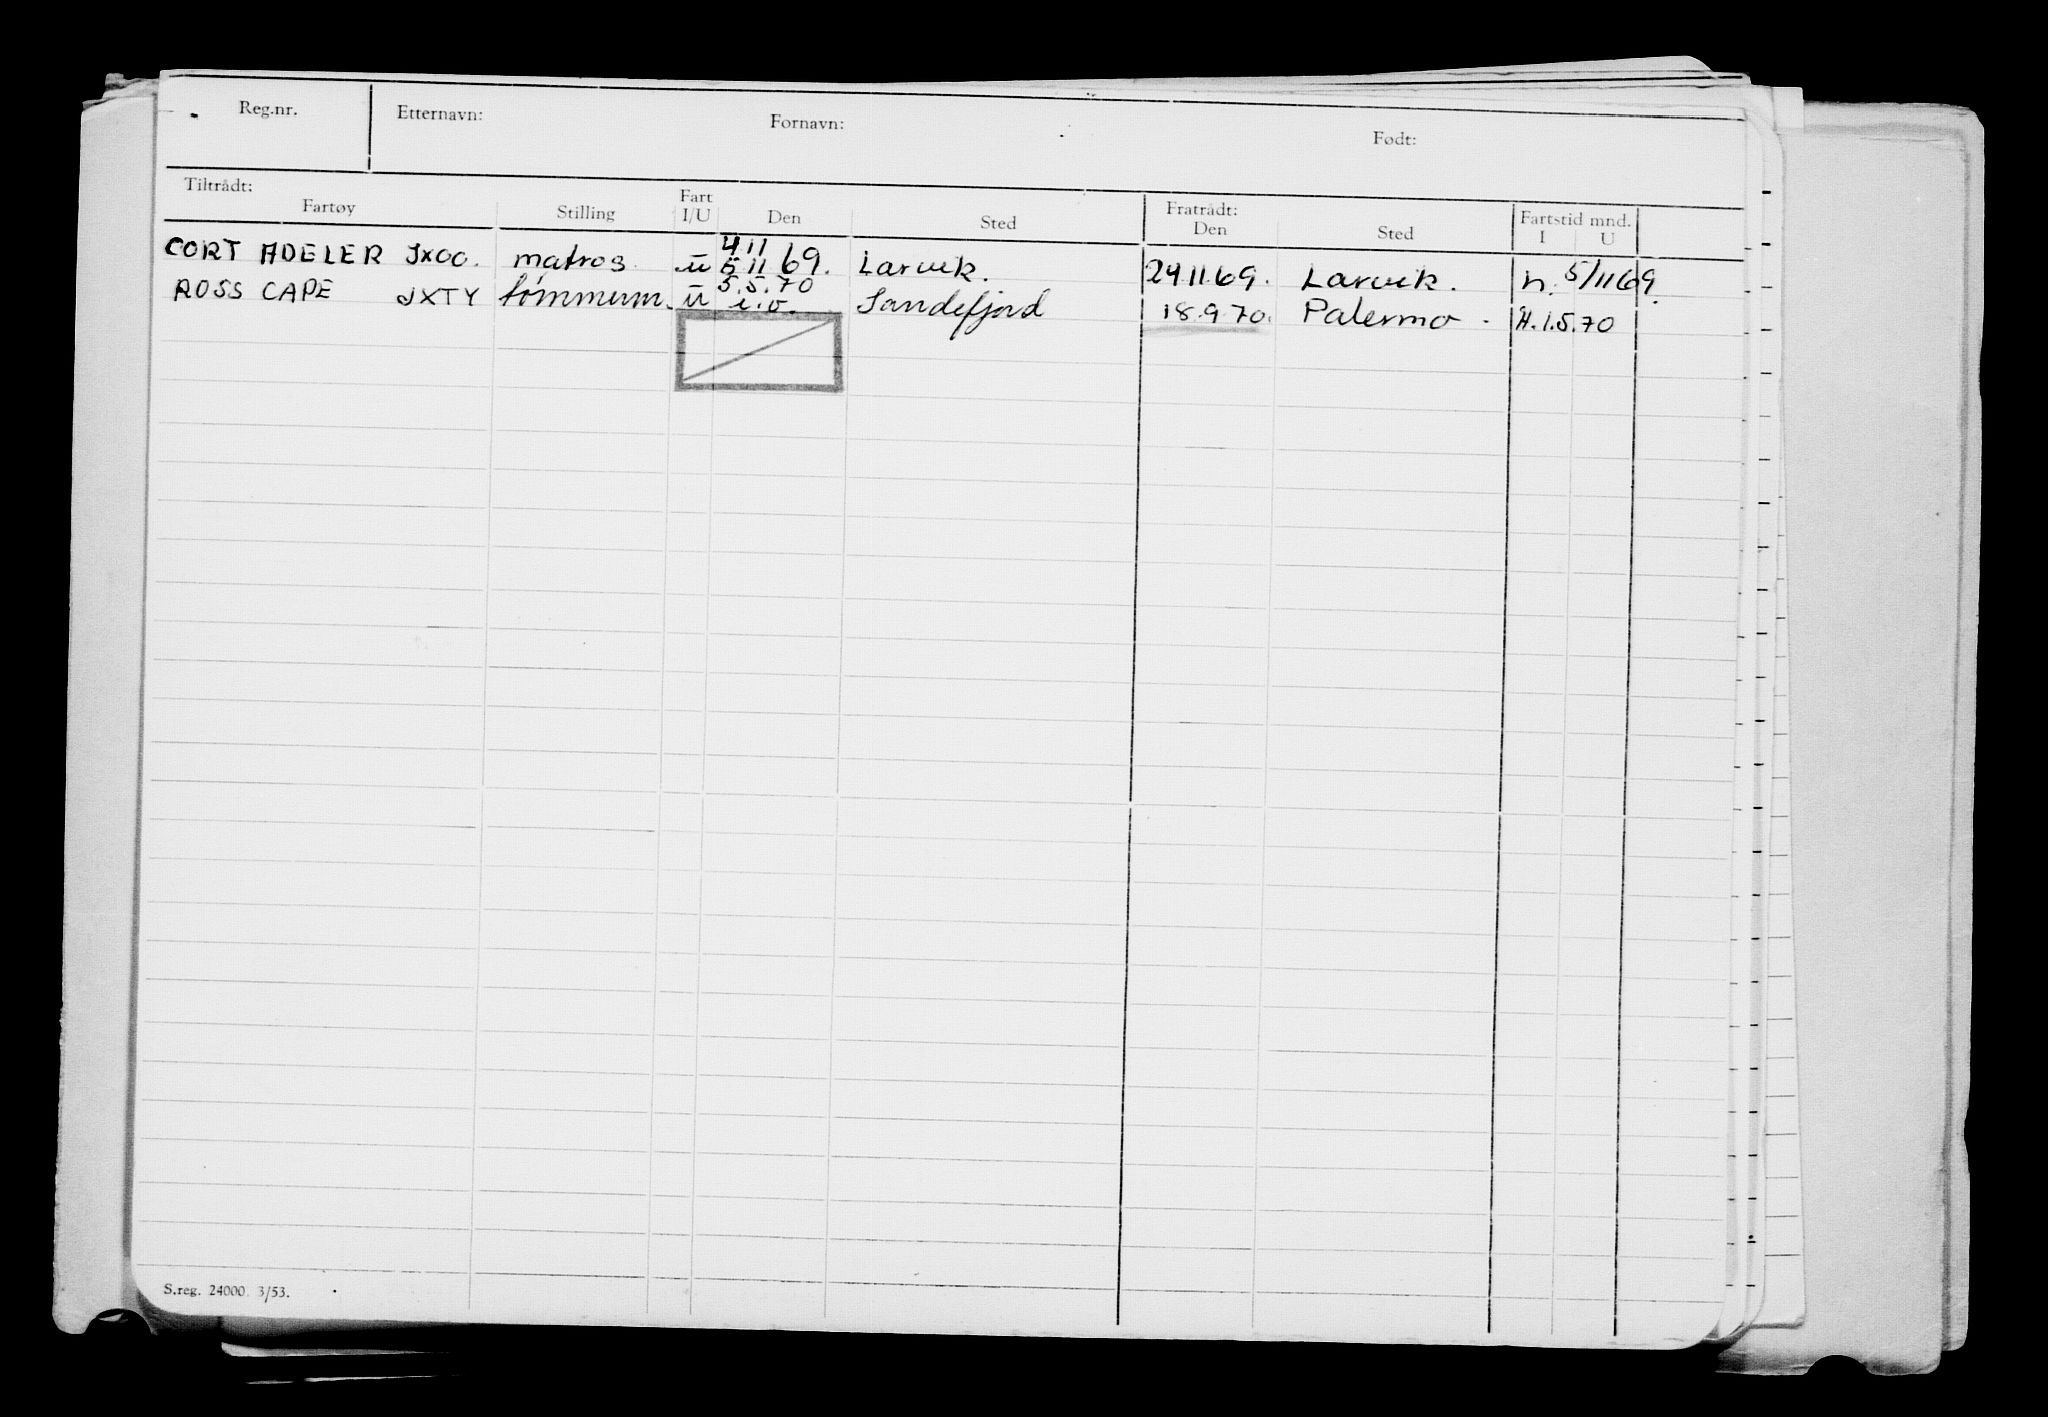 Reg.nr. Etternavn: Fornavn: Født:
Tiltrådt: Fratrådt:
Fartøy Stilling Fart I/U Den Sted Den Sted Fartstid mnd. I U
4 11
CORT ADELER JXOO. matros. u 5 11 69. Larvik. 24.11.69. Larvik. n. 5/11 69.
5.5.70
ROSS CAPE JXTY tømmerm. u i.o. Sandefjord 18.9.70. Palermo. H. 1.5.70
S.reg. 24000. 3/53.